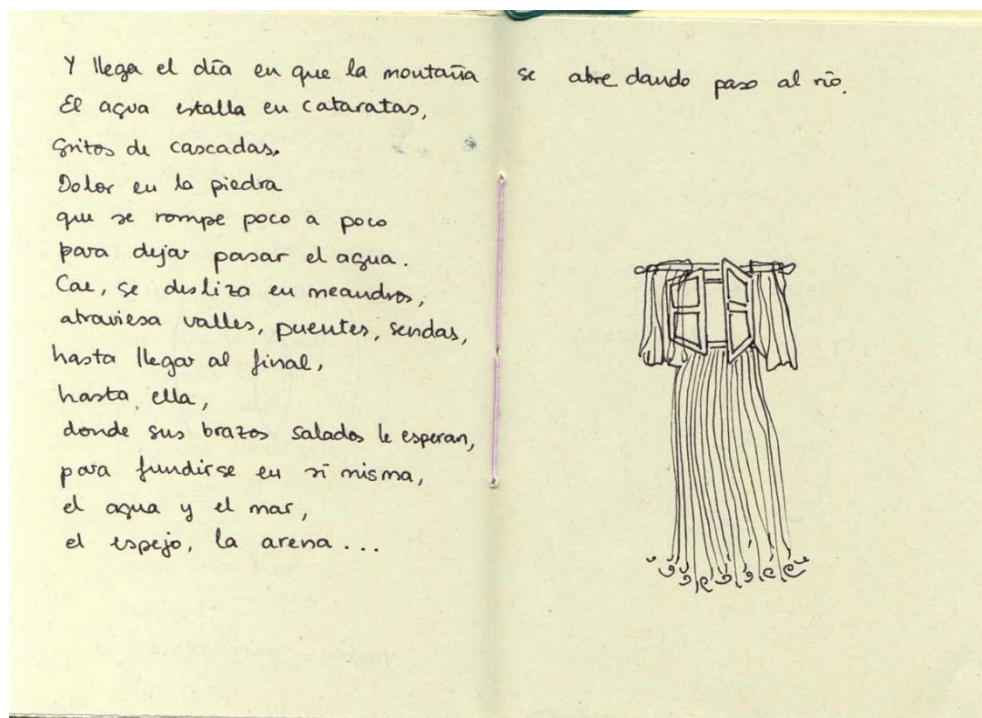 Y llega el día en que la montaña se abre dando paso al río.
El agua estalla en cataratas,
gritos de cascadas.
Dolor en la piedra
que se rompe poco a poco
para dejar pasar el agua.
Cae, se desliza en meandros,
atraviesa valles, puentes, sendas,
hasta llegar al final,
hasta ella,
donde sus brazos salados le esperan,
para fundirse en sí misma,
el agua y el mar,
el espejo, la arena...